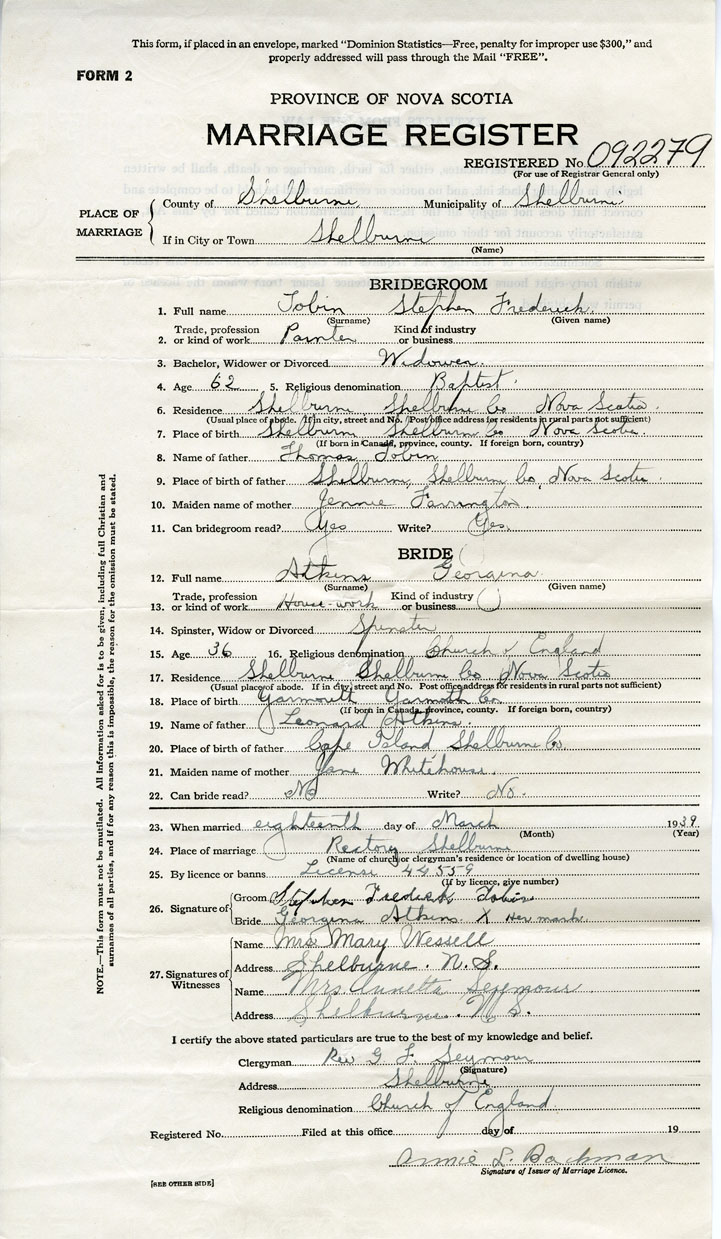 This form, if placed in an envelope, marked “Dominion Statistics—Free, penalty for improper use $300,” and
properly addressed will pass through the Mail “FREE”.
FORM 2
PROVINCE OF NOVA SCOTIA
MARRIAGE REGISTER
REGISTERED No. 092279
(For use of Registrar General only)
PLACE OF MARRIAGE
County of Shelburne Municipality of Shelburne
If in City or Town Shelburne
(Name)
BRIDEGROOM
1. Full name Tobin Stephen Frederick
(Surname) (Given name)
2. Trade, profession or kind of work Painter Kind of industry or business
3. Bachelor, Widower or Divorced Widower
4. Age 62 5. Religious denomination Baptist
6. Residence Shelburne Shelburne Co Nova Scotia
(Usual place of abode. If in city, street and No. Post office address for residents in rural parts not sufficient)
7. Place of birth Shelburne Shelburne Co Nova Scotia
(If born in Canada, province, county. If foreign born, country)
8. Name of father Thomas Tobin
9. Place of birth of father Shelburne, Shelburne Co, Nova Scotia
10. Maiden name of mother Jennie Farrington
11. Can bridegroom read? Yes Write? Yes
BRIDE
12. Full name Atkins Georgina
(Surname) (Given name)
13. Trade, profession or kind of work House-work Kind of industry or business
14. Spinster, Widow or Divorced Spinster
15. Age 36 16. Religious denomination Church of England
17. Residence Shelburne Shelburne Co Nova Scotia
(Usual place of abode. If in city, street and No. Post office address for residents in rural parts not sufficient)
18. Place of birth Yarmouth Yarmouth Co.
(If born in Canada, province, county. If foreign born, country)
19. Name of father Leonard Atkins
20. Place of birth of father Cape Island Shelburne Co
21. Maiden name of mother Jane Whitehouse
22. Can bride read? No Write? No
23. When married eighteenth day of March 1939
(Month) (Year)
24. Place of marriage Rectory Shelburne
(Name of church or clergyman’s residence or location of dwelling house)
25. By licence or banns License 44559
(If by licence, give number)
26. Signature of
Groom Stephen Frederick Tobin
Bride Georgina Atkins X Her mark
27. Signatures of Witnesses
Name Mrs Mary Wessell
Address Shelburne. N.S.
Name Mrs. Annetta Seymour
Address Shelburne. N.S.
I certify the above stated particulars are true to the best of my knowledge and belief.
Clergyman Rev G F. Seymour
(Signature)
Address Shelburne
Religious denomination Church of England
Registered No. Filed at this office day of 19
Annie L. Bachman
Signature of Issuer of Marriage Licence.
[SEE OTHER SIDE]
NOTE.—This form must not be mutilated. All information asked for is to be given, including full Christian and
surnames of all parties, and if for any reason this is impossible, the reason for the omission must be stated.